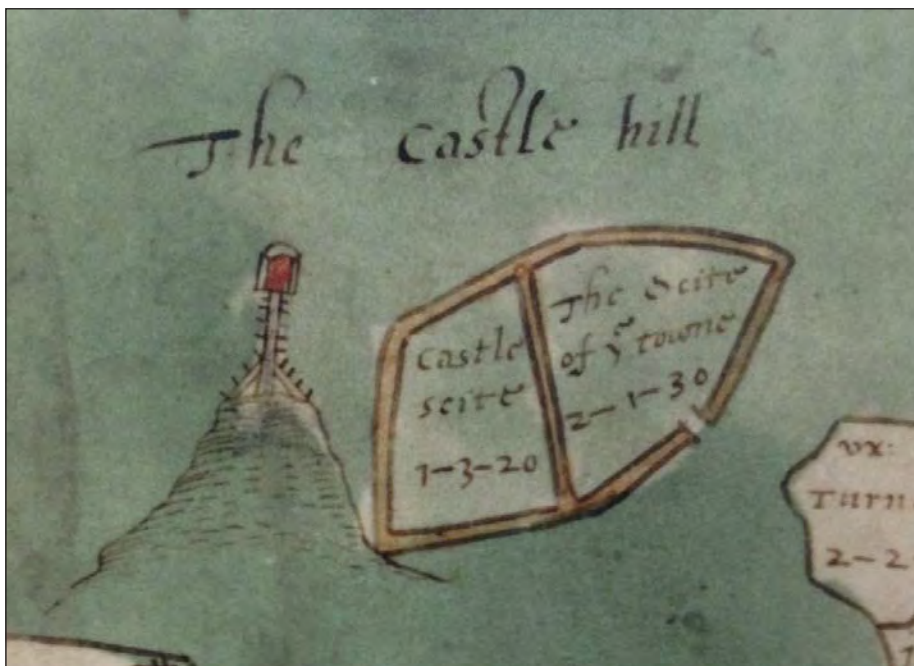 The Castle hill
Castle
scite
1-3-20
The Scite
of yᵉ towne
2-1-30
vx:
Turn
2-2